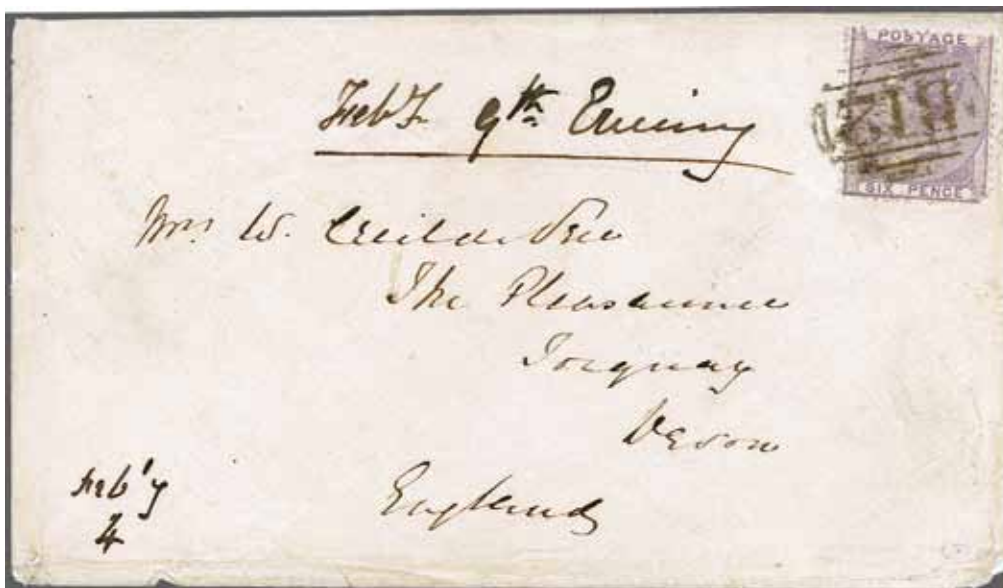 POSTAGE
SIX PENCE
9th Evening
Mrs W.
The Pleasaunce
Torquay
Devon
England
Feb'y
4